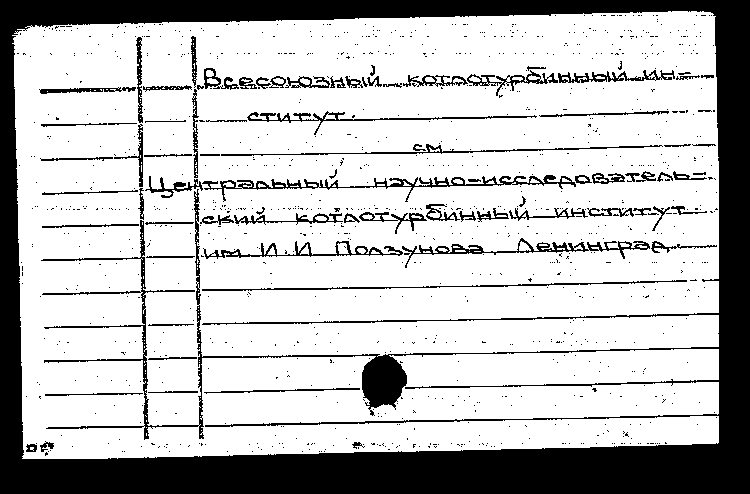 Всесоюзный котлотурбинный ин=
ститут.
см
Центральный научно-исследователь=
ский котлотурбинный институт
им И.И Ползунова. Ленинград.